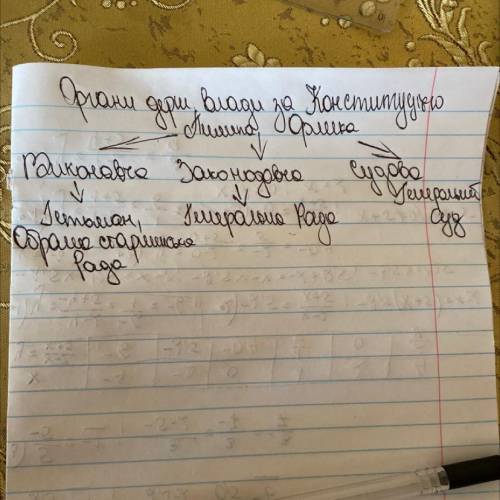 Органи держ. влади за Конституцією
Пилипа Орлика
Виконавча Законодавча Судова
Гетьман, Генеральна Рада Генеральний Суд
Обрана старшинська
Рада